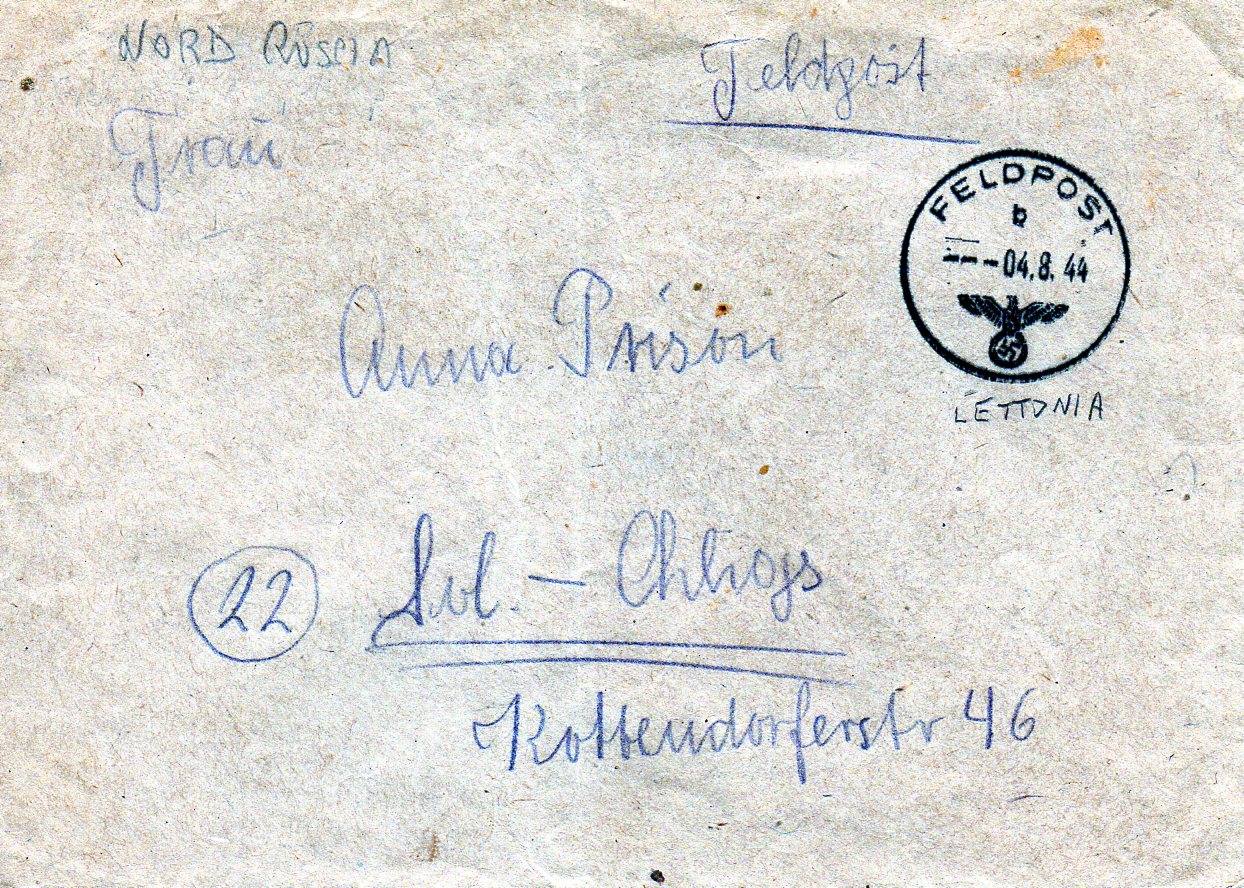 NORD RUSSIA
Feldpost
Frau
FELDPOST
b
---04.8.44
Anna Prison
LETTONIA
22 Sol. - Ohligs
Kottendorferstr 46